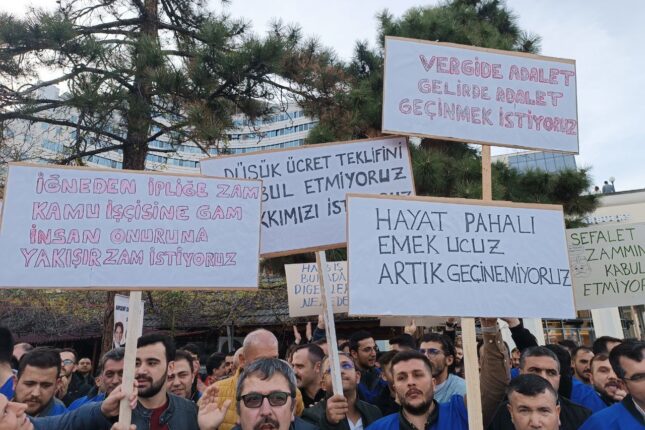 VERGİDE ADALET
GELİRDE ADALET
GEÇİNMEK İSTİYORUZ
DÜŞÜK ÜCRET TEKLİFİNİ
KABUL ETMİYORUZ
HAKKIMIZI İSTİYORUZ
İĞNEDEN İPLİĞE ZAM
KAMU İŞÇİSİNE GAM
İNSAN ONURUNA
YAKIŞIR ZAM İSTİYORUZ
HAYAT PAHALI
EMEK UCUZ
ARTIK GEÇİNEMİYORUZ
SEFALET
ZAMMINI
KABUL
ETMİYORUZ